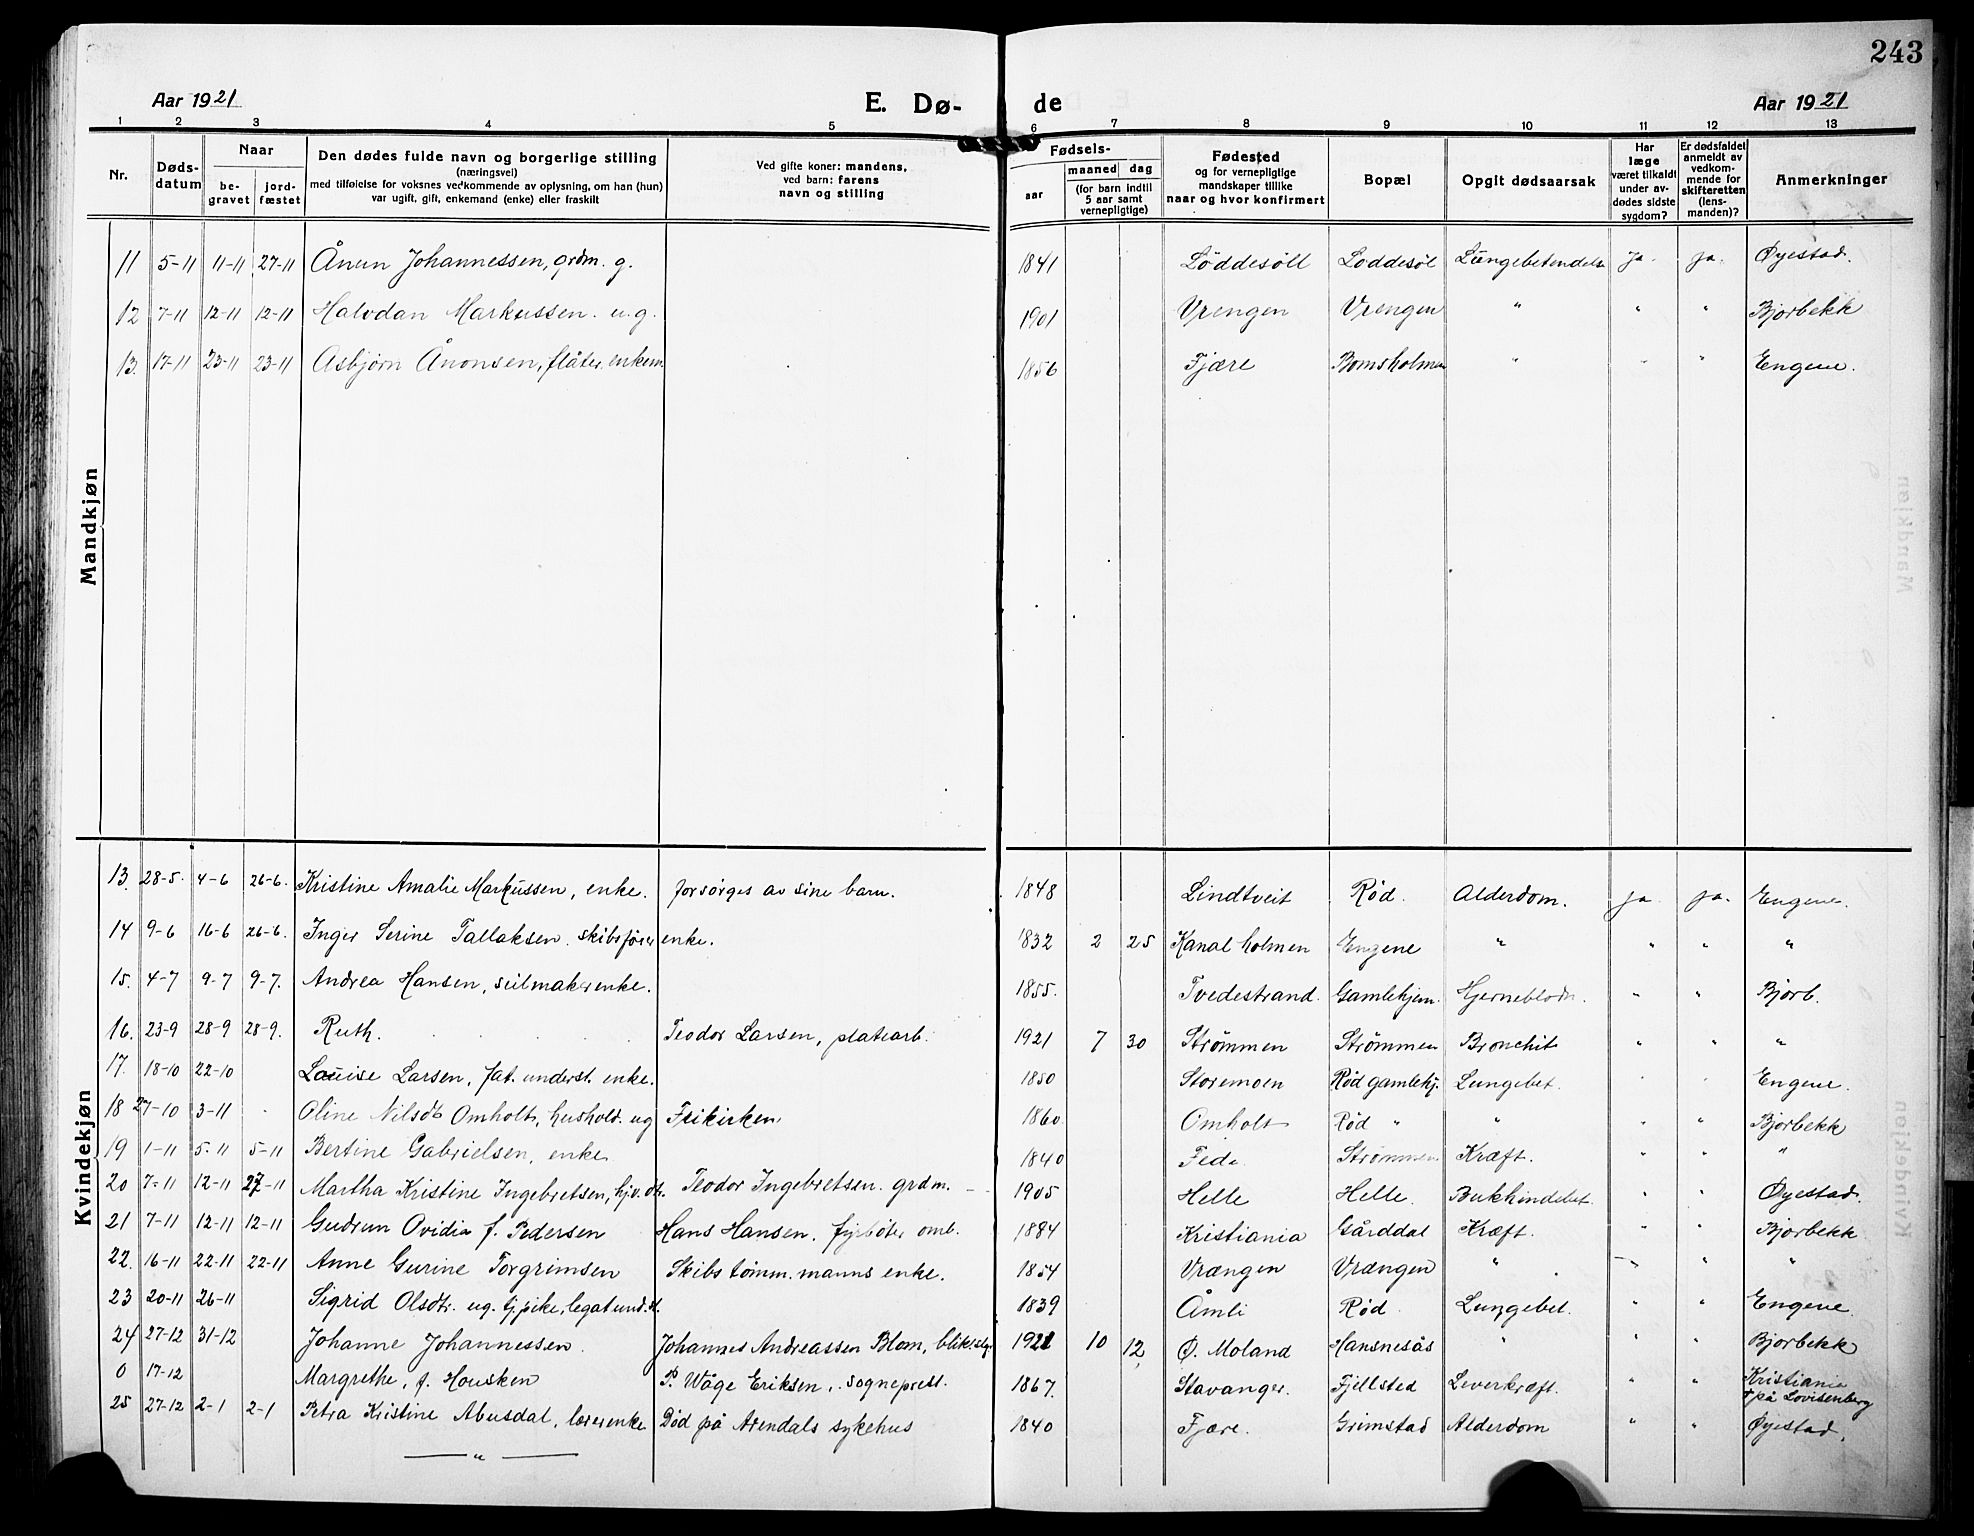 243
Aar 1921 E. Dø- de Aar 1921
1 2 3 4 5 6 7 8 9 10 11 12 13
Nr. Døds-datum Naar be-gravet jord-fæstet Den dødes fulde navn og borgerlige stilling (næringsvei) med tilføielse for voksnes vedkommende av oplysning, om han (hun) var ugift, gift, enkemand (enke) eller fraskilt Ved gifte koner: mandens, ved barn: farens navn og stilling Fødsels- aar maaned dag (for barn indtil 5 aar samt vernepligtige) Fødested og for vernepligtige mandskaper tillike naar og hvor konfirmert Bopæl Opgit dødsaarsak Har læge været tilkaldt under av-dødes sidste sygdom? Er dødsfaldet anmeldt av vedkom-mende for skifteretten (lens-manden)? Anmerkninger
Mandkjøn
11 5-11 11-11 27-11 Ånun Johannessen, grdm. g. 1841 Løddesøll Løddesøl Lungebetendels Ja. ja. Øyestad.
12 7-11 12-11 12-11 Halvdan Markussen. u.g. 1901 Vrengen Vrengen " " " Bjorbekk
13. 17-11 23-11 23-11 Asbjørn Ånonsen, flåter, enkem 1856 Fjære Bomsholmen " " " Engene.
Kvindekjøn
13. 28-5. 4-6 26-6. Kristine Amalie Markussen, enke. forsørges av sine barn. 1848 Lindtveit Rød. Alderdom. ja ja. Engene.
14 9-6 16-6 26-6. Inger Serine Tallaksen. skibsfører enke. 1832 2 25 Kanalholmen Engene " " " "
15. 4-7 9-7 9-7. Andrea Hansen, seilmakerenke. 1855. Tvedestrand. Gamlehjem. Hjerneblodn. " " Bjorb.
16. 23-9 28-9 28-9. Ruth. Teodor Larsen, platearb. 1921 7 30 Strømmen Strømmen Bronchit " " "
17. 18-10 22-10 Louise Larsen, fat. underst. enke. 1850 Storemoen Rød gamlehj. Lungebet. " " Engene.
18 27-10 3-11 Oline Nilsdt Omholt, hushold. ug Frikirken 1860 Omholt Rød " " " " Bjorbekk
19 1-11 5-11 5-11 Bertine Gabrielsen, enke 1840 Fede. Strømmen. Kræft. " " "
20 7-11 12-11 27-11 Martha Kristine Ingebretsen, hjv. dt. Teodor Ingebretsen. grdm. 1905 Helle Helle. Bukhindebet. " " Øyestad.
21 7-11 12-11 12-11 Gudrun Ovidia f. Pedersen Hans Hansen. fyrbøter omb. 1884 Kristiania Gårddal Kræft. " " Bjorbekk
22. 16-11 22-11 22-11 Anne Gurine Torgrimsen Skibstømm.manns enke. 1854 Vrængen Vrængen " " " "
23 20-11 26-11 Sigrid Olsdtr. ug. tj.pike, legatund.st. 1839 Åmli Rød Lungebet. " " Engene
24 27-12 31-12 Johanne Johannessen Johannes Andreassen Blom, blik.slgr 1921 10 12 Ø. Moland Hansnesås " " " Bjorbekk
0 17-12 Margrethe, f. Housken P. Wåge Eriksen, sogneprest. 1867. Stavanger. Fjellsted Leverkræft. " " Kristiania † på Lovisenberg
25 27-12 2-1 2-1 Petra Kristine Abusdal, lærerenke Død på Arendals sykehus 1840 Fjære. Grimstad Alderdom " " Øyestad.
— " —